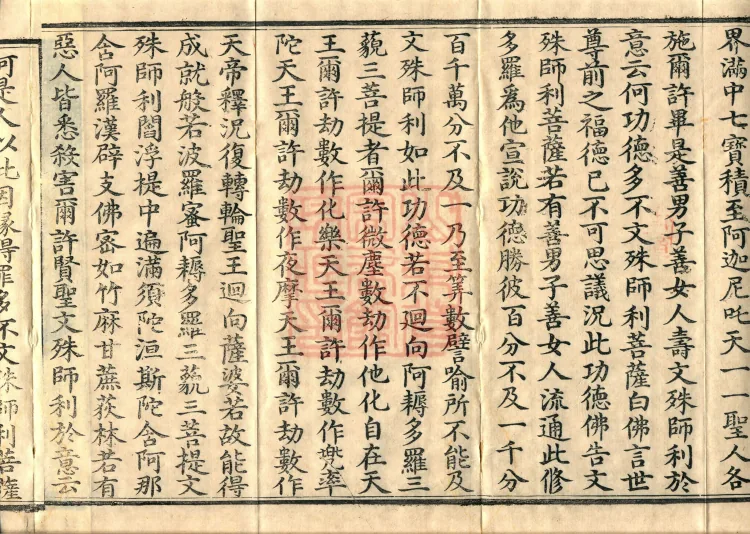 界滿中七寶積至阿迦尼吒天一一聖人各
施爾許畢是善男子善女人壽文殊師利於
意云何功德多不文殊師利菩薩白佛言世
尊前之福德已不可思議況此功德佛告文
殊師利菩薩若有善男子善女人流通此修
多羅爲他宣說功德勝彼百分不及一千分
百千萬分不及一乃至筭數譬喻所不能及
文殊師利如此功德若不迴向阿耨多羅三
藐三菩提者爾許微塵數劫作他化自在天
王爾許劫數作化樂天王爾許劫數作兜率
陀天王爾許劫數作夜摩天王爾許劫數作
天帝釋況復轉輪聖王迴向薩婆若故能得
成就般若波羅蜜阿耨多羅三藐三菩提文
殊師利閻浮提中遍滿須陀洹斯陀含阿那
含阿羅漢辟支佛密如竹麻甘蔗荻林若有
惡人皆悉殺害爾許賢聖文殊師利於意云
何是人以此因緣得罪多不文殊師利菩薩